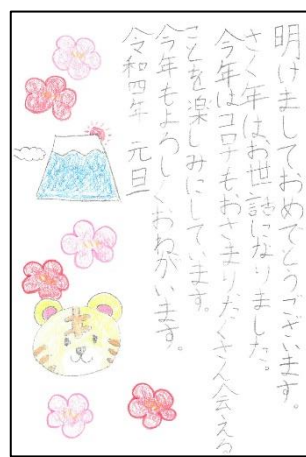 明けましておめでとうございます。
さく年はお世話になりました。
今年はコロナもおさまりたくさん会える
ことを楽しみにしています。
今年もよろしくおねがいます。
令和四年 元旦